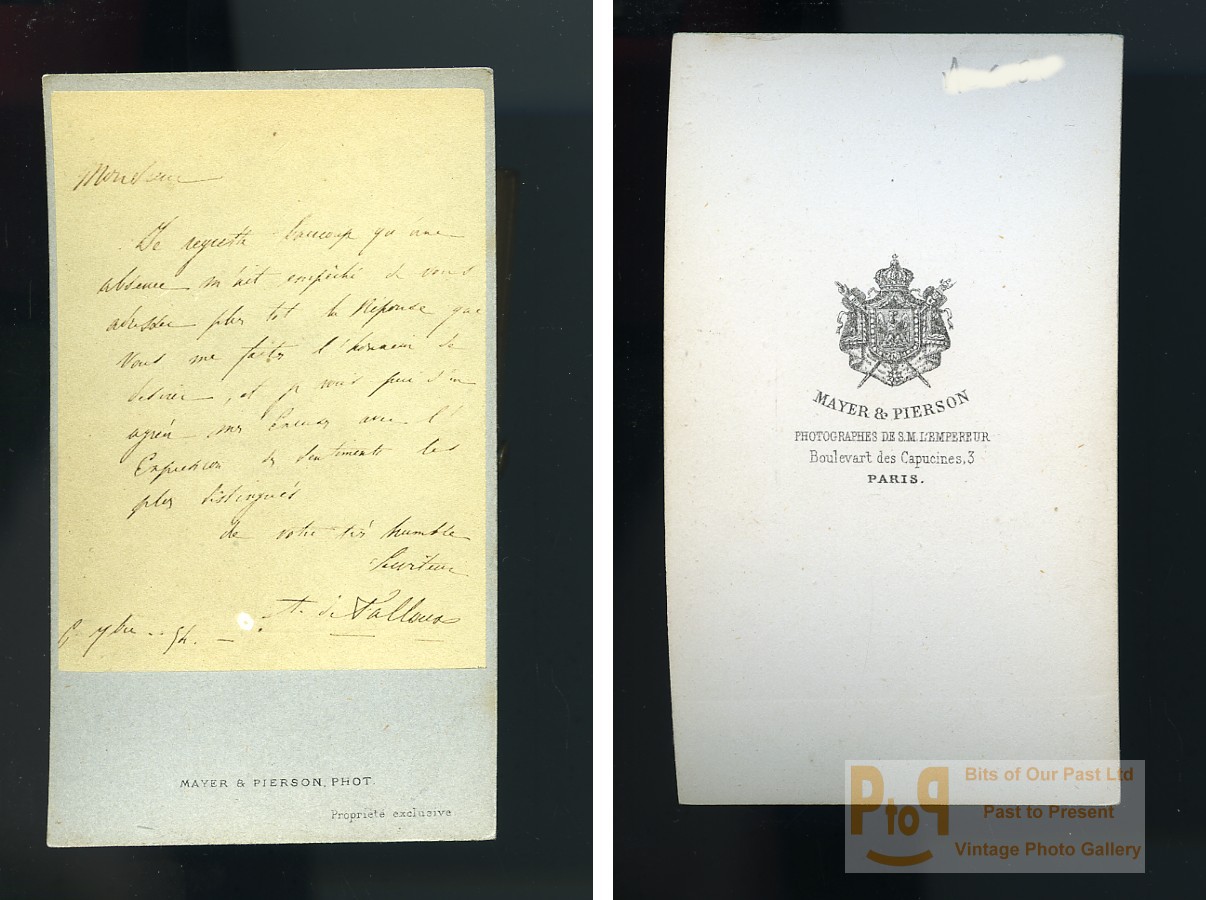 Monsieur
Je regrette beaucoup qu'une
absence m'ait empêché de vous
adresser plus tôt la Réponse que
Vous me faites l'honneur de
désirer, et je vous prie d'en
agréer mes Excuses avec l'
Expression des Sentiments les
plus distingués
de votre très humble
Serviteur
A. de Falloux
7bre 54.
MAYER & PIERSON, PHOT.
Propriété exclusive
MAYER & PIERSON
PHOTOGRAPHES DE S.M. L'EMPEREUR
Boulevart des Capucines, 3
PARIS.
PtoP
Bits of Our Past Ltd
Past to Present
Vintage Photo Gallery